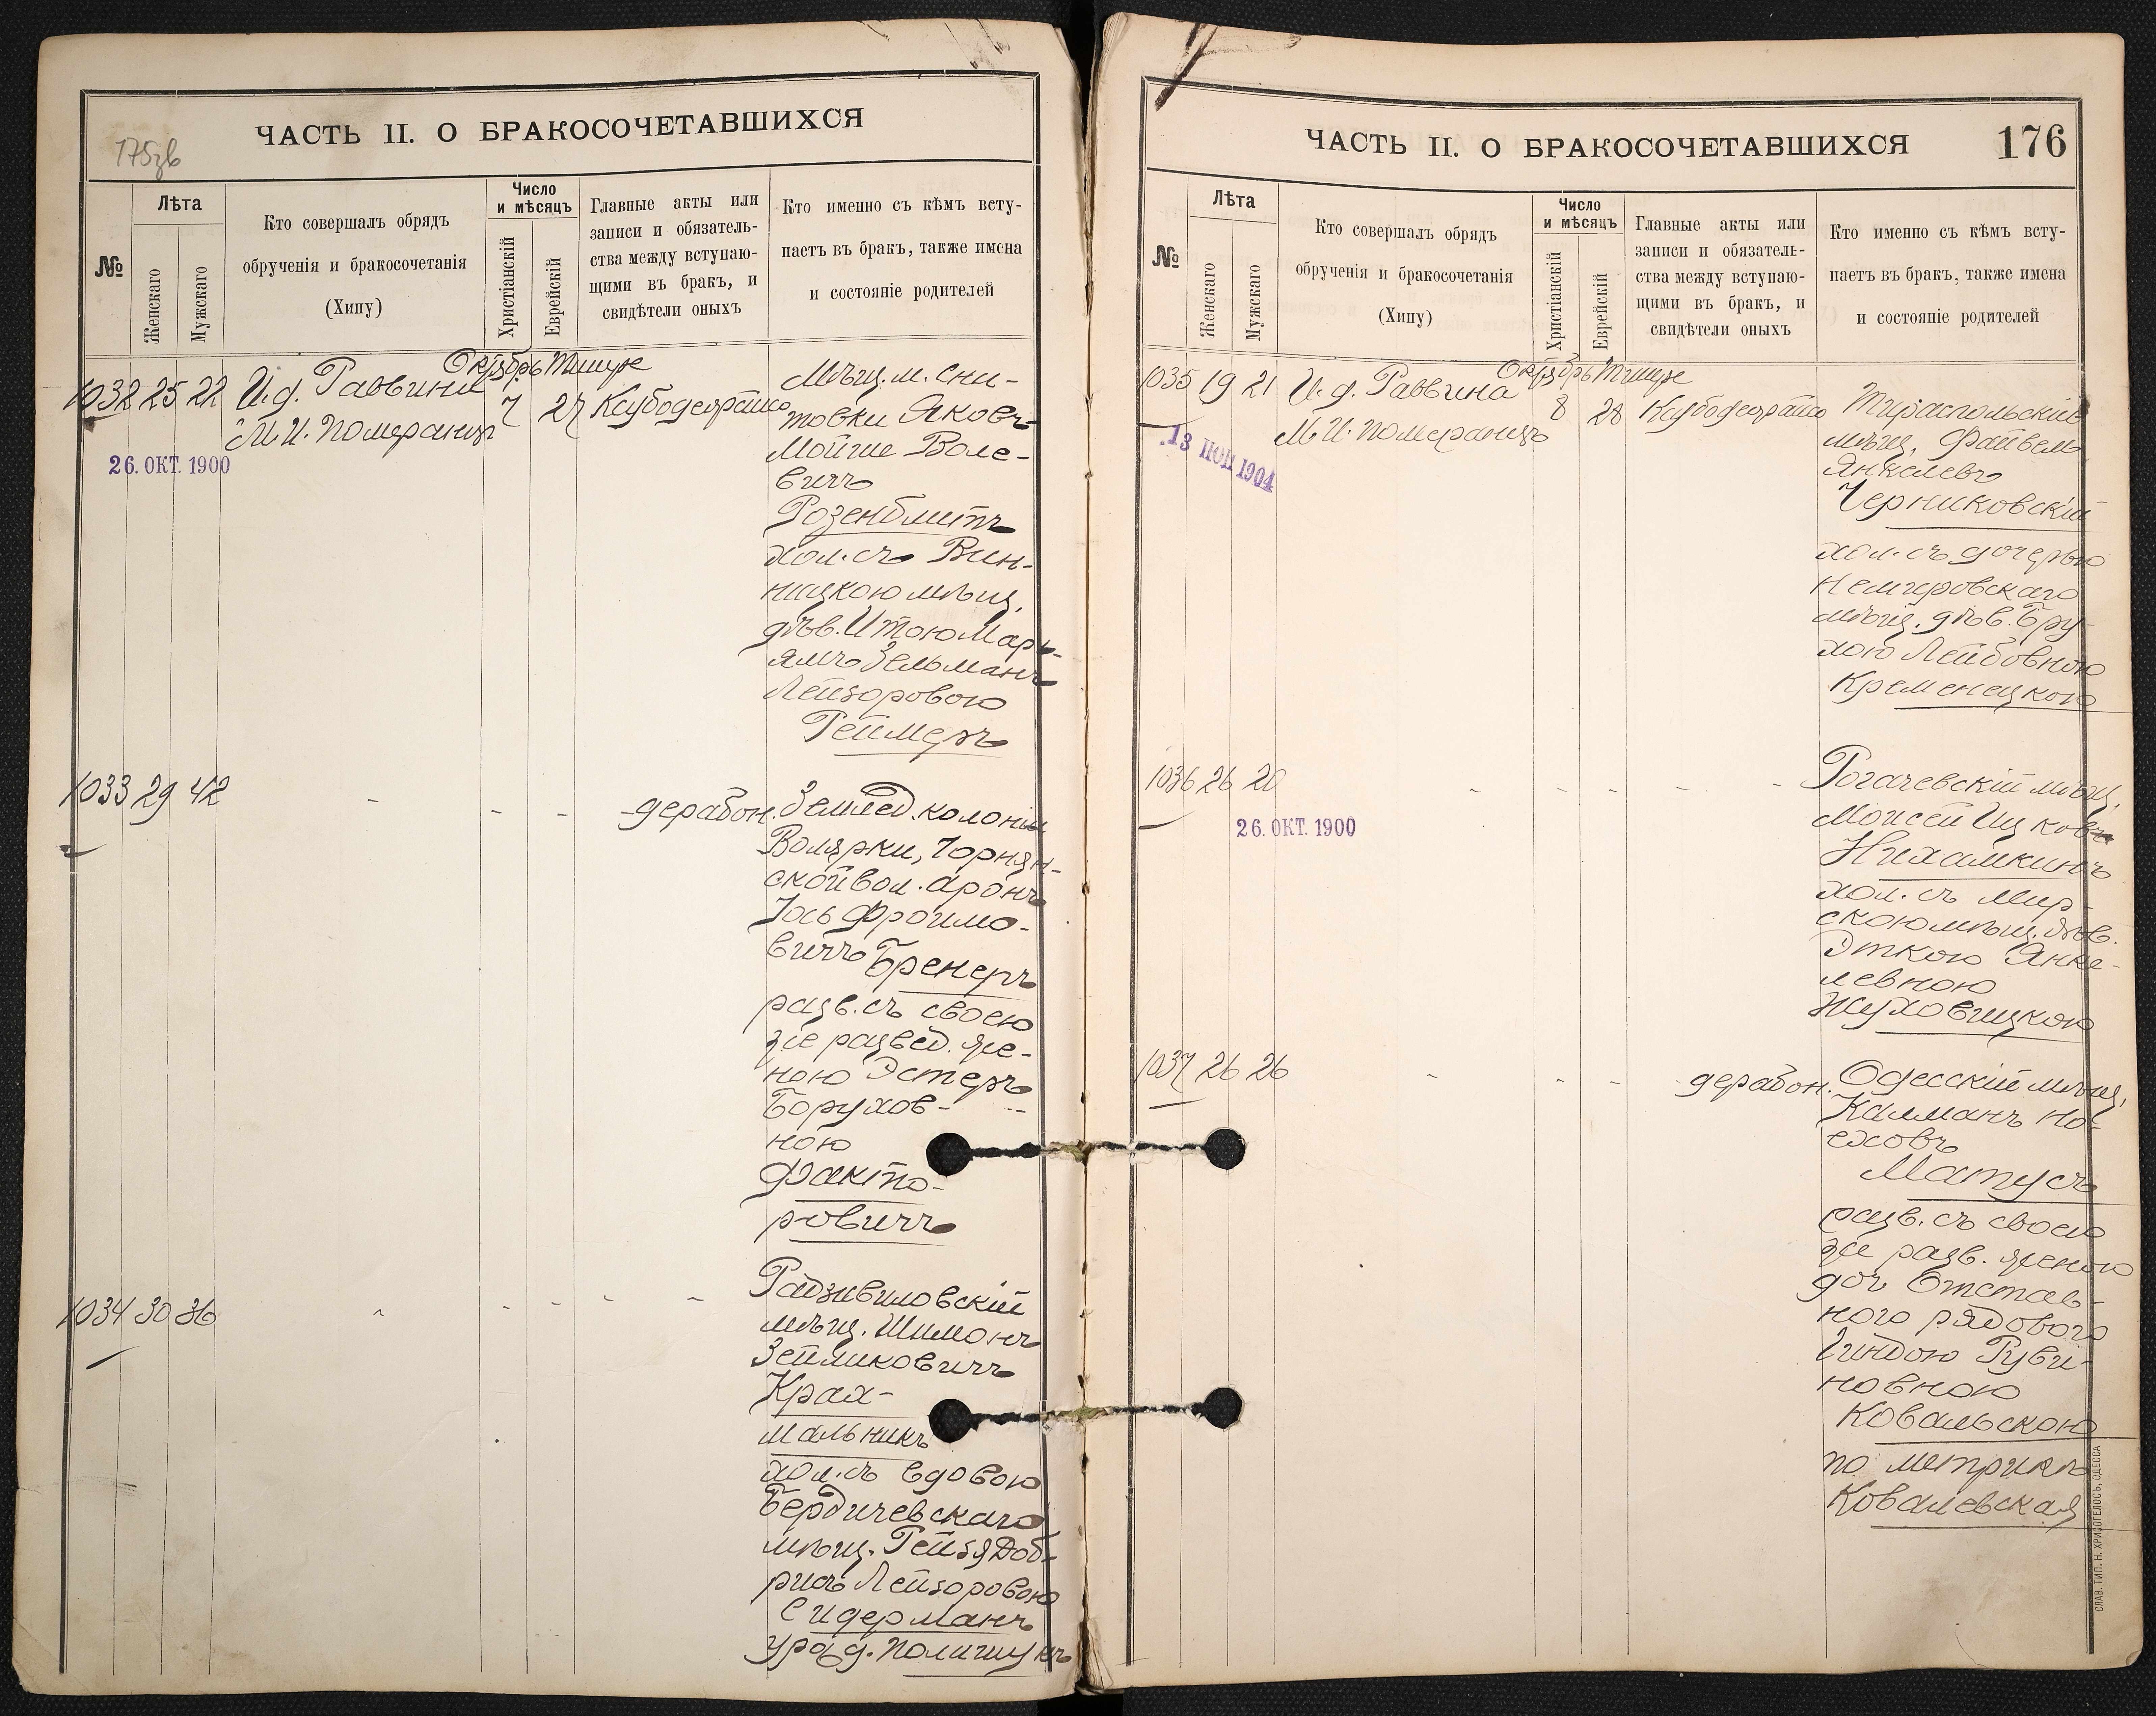 175зв
ЧАСТЬ II. О БРАКОСОЧЕТАВШИХСЯ
№
Лѣта
Женскаго
Мужскаго
Кто совершалъ обрядъ
обрученія и бракосочетанія
(Хипу)
Число
и мѣсяцъ
Христіанскій
Еврейскій
Главные акты или
записи и обязатель-
ства между вступаю-
щими въ бракъ, и
свидѣтели оныхъ
Кто именно съ кѣмъ всту-
паетъ въ бракъ, также имена
и состояніе родителей
Октябрь Тишре
1032 25 22 И.д. Раввина 7 27 Ксубодеорайта
М.И. Померанцъ
26. ОКТ. 1900
Мѣщ. м. Сни-
товки Яковъ
Мойше Воле-
вичъ
Розенблитъ
хол. съ Вин-
ницкою мѣщ.
дѣв. Итою Марь-
ямъ Зельманъ
Лейзоровою
Реймеръ
1033 29 42 - - - -дерабон. Землед. колоніи
Волярки, Чорнян-
ской вол. Аронъ
Іось Фроимо-
вичъ Бренеръ
разв. съ своею
же развед. же-
ною Эстеръ
Борухов-
ною
Факто-
ровичъ
1034 30 36 - - - - -
Радзивиловскій
мѣщ. Шимонъ
Зейликовичъ
Крах-
мальникъ
хол. съ вдовою
Бердичевскаго
мѣщ. Рейзя Доб-
рисъ Лейзоровою
Сидерманъ
урожд. Полищукъ
ЧАСТЬ II. О БРАКОСОЧЕТАВШИХСЯ
176
№
Лѣта
Женскаго
Мужскаго
Кто совершалъ обрядъ
обрученія и бракосочетанія
(Хипу)
Число
и мѣсяцъ
Христіанскій
Еврейскій
Главные акты или
записи и обязатель-
ства между вступаю-
щими въ бракъ, и
свидѣтели оныхъ
Кто именно съ кѣмъ всту-
паетъ въ бракъ, также имена
и состояніе родителей
Октябрь Тишре
1035 19 21 И.д. Раввина 8 28 Ксубодеорайта
М.И. Померанцъ
13 1904
Тираспольскій
мѣщ. Файвель
Янкелевъ
Черниковскій
хол. съ дочерью
Немировскаго
мѣщ. дѣв. Бру-
хою Лейбовною
Кременецкою
1036 26 20 - - - -
26. ОКТ. 1900
Рогачевскій мѣщ.
Моисей Ицковъ
Нихамкинъ
хол. съ Мир-
скою мѣщ. дѣв.
Эткою Янке-
левною
Жуховицкою
1037 26 26 - - - дерабон. Одесскій мѣщ.
Калманъ Но-
еховъ
Матусъ
разв. съ своею
же разв. женою
доч Отстав-
ного рядового
Гиндою Руви-
новною
Ковальскою
по метрикѣ
Ковалевская
СЛАВ. ТИП. Н. ХРИСОГЕЛОСЪ, ОДЕССА